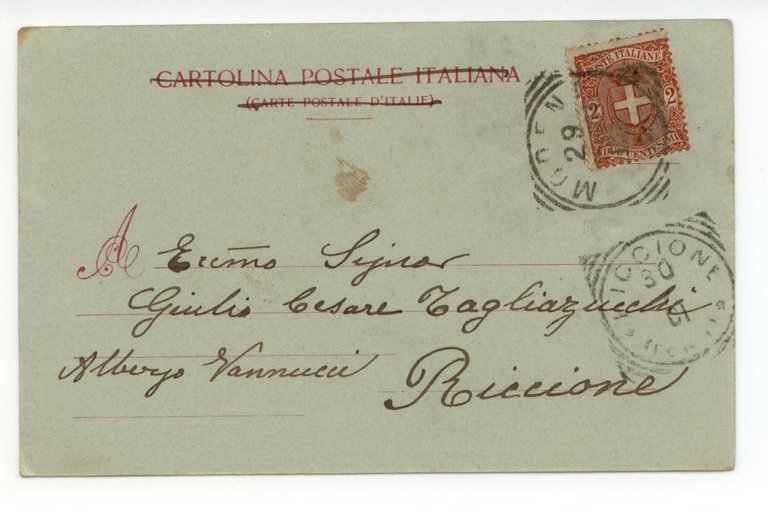 CARTOLINA POSTALE ITALIANA
(CARTE POSTALE D'ITALIE)
POSTE ITALIANE
2 2
DUE CENTESIMI
MODEN
29
A Eccmo Signor
Giulio Cesare Tagliazucchi
Albergo Vannucci Riccione
RICCIONE
30